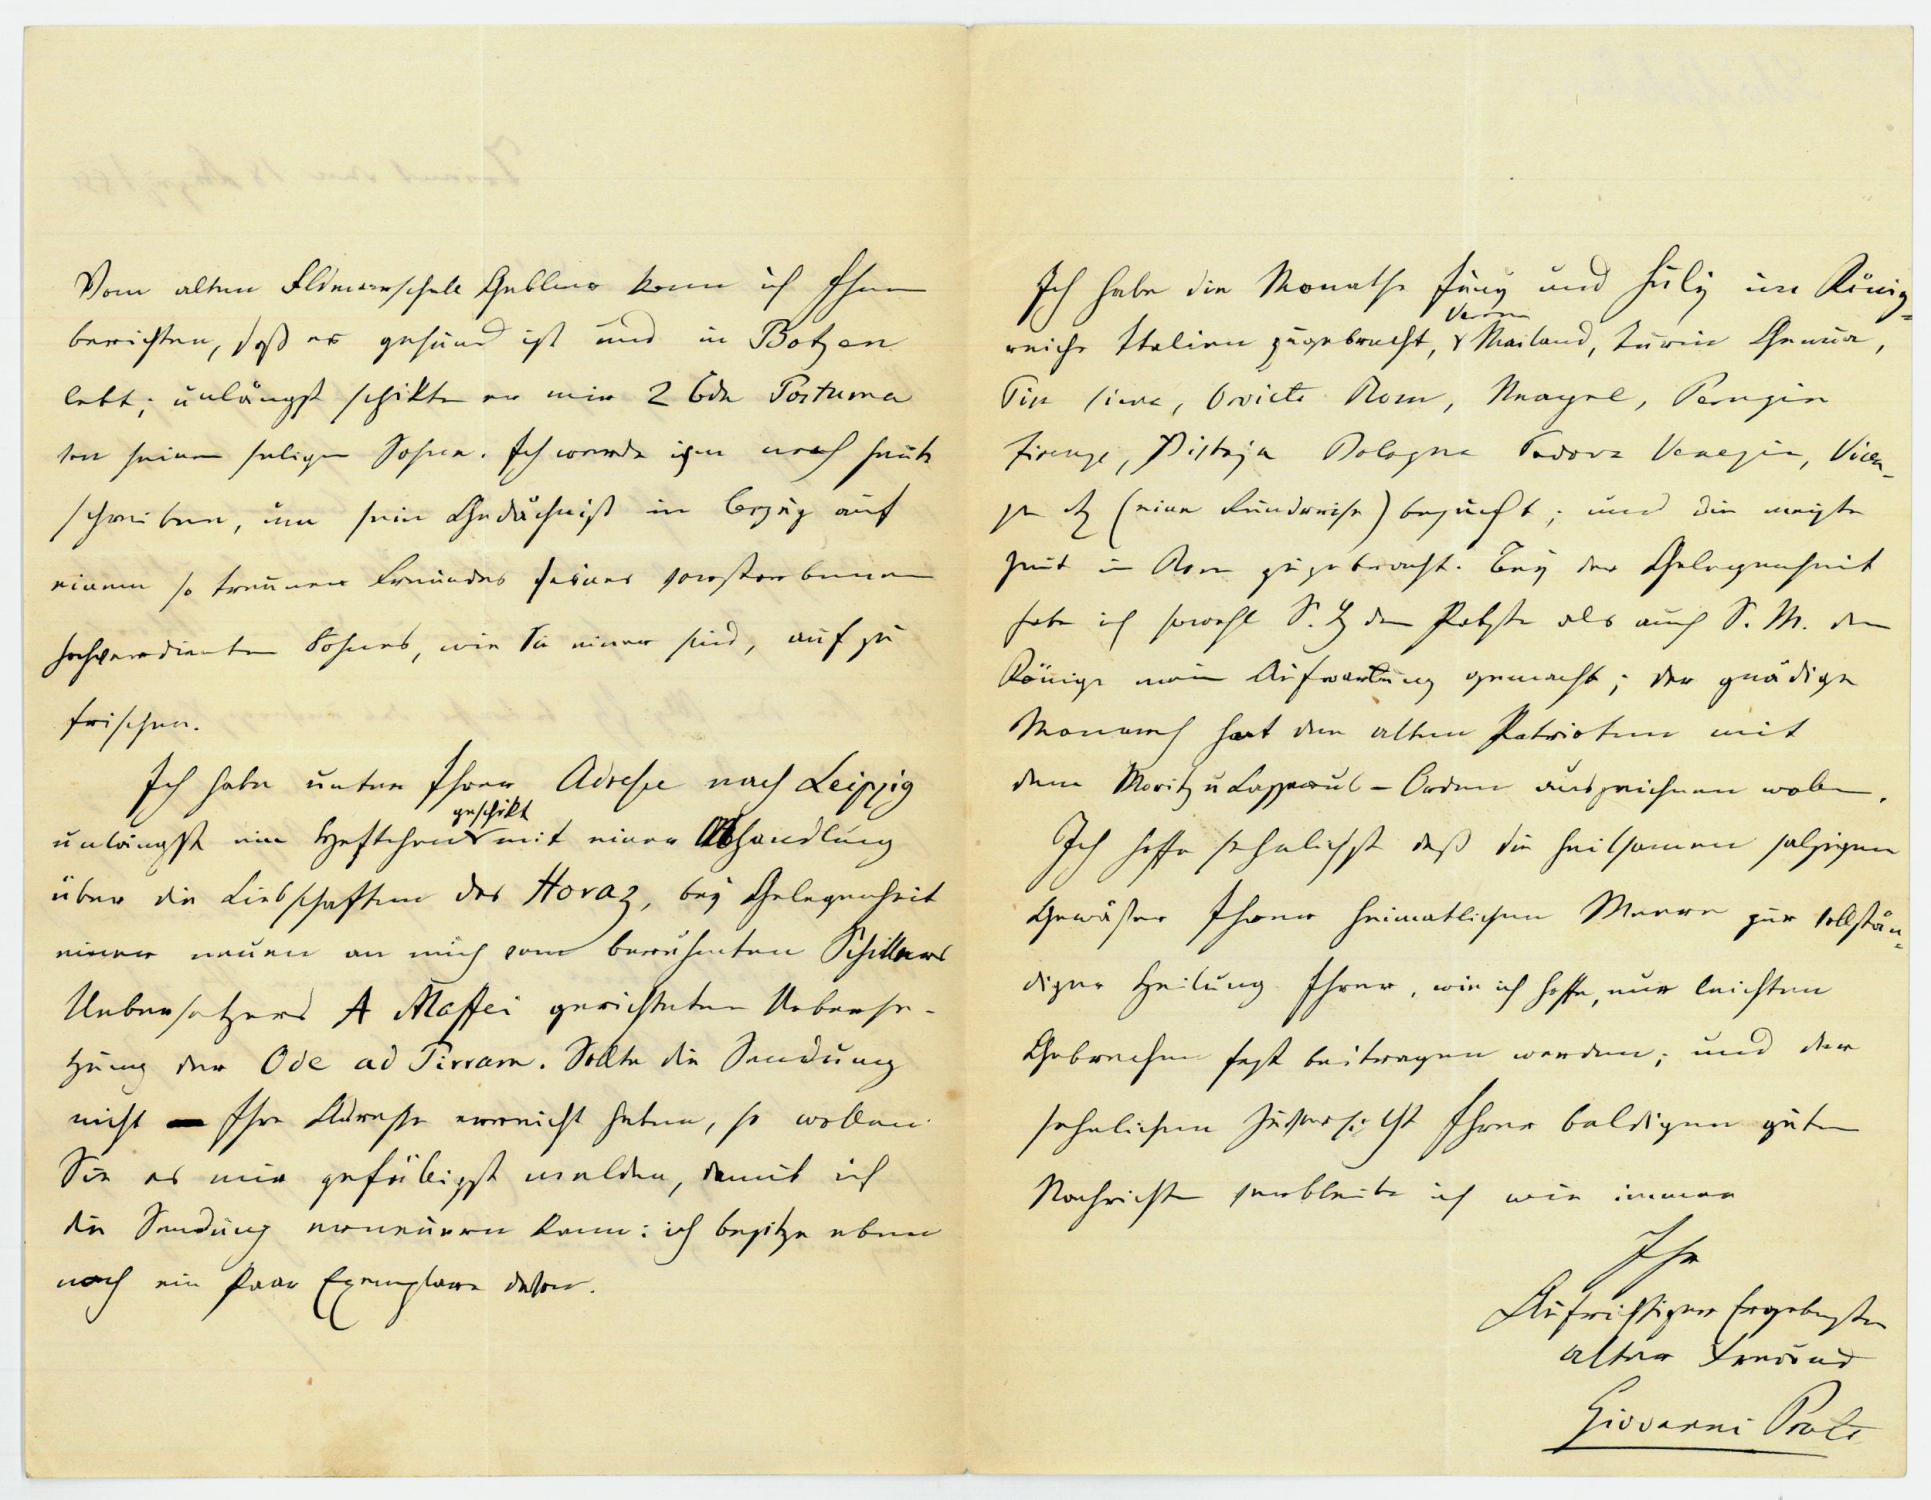 Vom alten Feldmarschall Gablenz kann ich Ihnen
berichten, daß er gesund ist und in Botzen
lebt; unlängst schikte er mir 2 Bde Postuma
von seinem seligen Sohne. Ich werde ihm noch heute
schreiben, um sein Gedächniß in Bezug auf
einem so treuen Freundes seines verstorbenen
hochverdienten Sohnes, wie Sie einer sind, auf zu
frischen.
Ich habe unter Ihrer Adresse nach Leipzig
geschikt
unlängst ein Heftchen mit einer Abhandlung
über die Liebschaften des Horaz, bey Gelegenheit
einer neuen an mich vom berühmten Schillers
Uebersetzers A Maffei gerichteten Ueberse-
tzung der Ode ad Pirram. Sollte die Sendung
nicht Ihre Adresse erreicht haben, so wollen
Sie es mir gefälligst melden, damit ich
die Sendung erneuern kann: ich besitze eben
noch ein Paar Exemplare davon.
Ich habe die Monathe Juny und July im König-
reiche Italien zugebracht, Mailand, Turin Genua,
Pisa Siena, Orvieto Rom, Neapel, Perugia
Firenze, Pistoja Bologna Padova Venezia, Vicen-
za (eine Rundreise) besucht; und die meiste
Zeit in Rom zugebracht. Bey der Gelegenheit
habe ich sowohl S. H den Pabste als auch S. M. dem
Könige mein Aufwartung gemacht; der gnädige
Monarch hat den alten Patrioten mit
dem Moritz u Lazzarus-Orden auszeichnen wollen.
Ich hoffe sehnlichst daß die heilsamen salzigen
Gewässer Ihrer heimatlichen Meere zur vollstän-
diger Heilung Ihrer, wie ich hoffe, nur leichten
Gebrechen fest beitragen werden; und der
sehnlichen Zuversicht Ihrer baldigen guten
Nachrichten verbleibe ich wie immer
Ihr
Aufrichtiger Ergebenster
alter Freund
Giovanni Prati